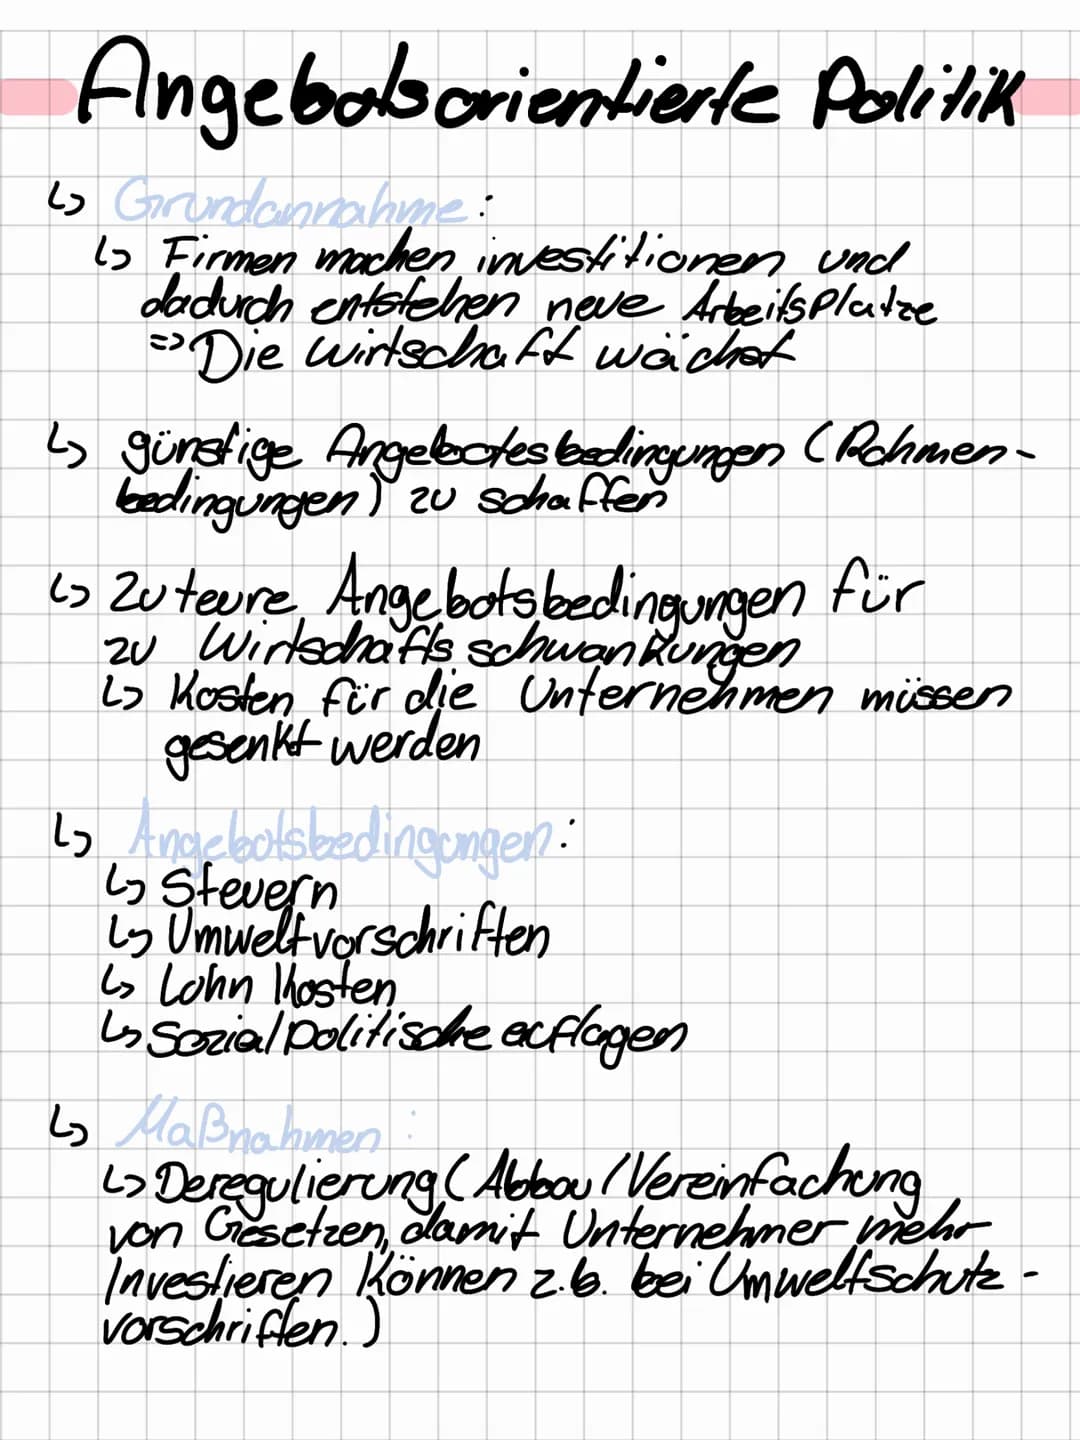 Angebotsorientierte Politik
↳ Grundannahme:
↳ Firmen machen investitionen und
dadurch entstehen neue Arbeitsplatze
=> Die Wirtschaft wächst
↳ günstige Angebotesbedingungen (Rahmen-
bedingungen) zu schaffen
↳ Zu teure Angebotsbedingungen für
zu Wirtschaftsschwankungen
↳ Kosten für die Unternehmen müssen
gesenkt werden
↳ Angebotsbedingungen:
↳ Steuern
↳ Umweltvorschriften
↳ Lohn Kosten
↳ Sozialpolitische auflagen
↳ Maßnahmen:
↳ Deregulierung (Abbau/Vereinfachung
von Gesetzen, damit Unternehmer mehr
Investieren Können z.b. bei Umweltschutz-
vorschriften.)